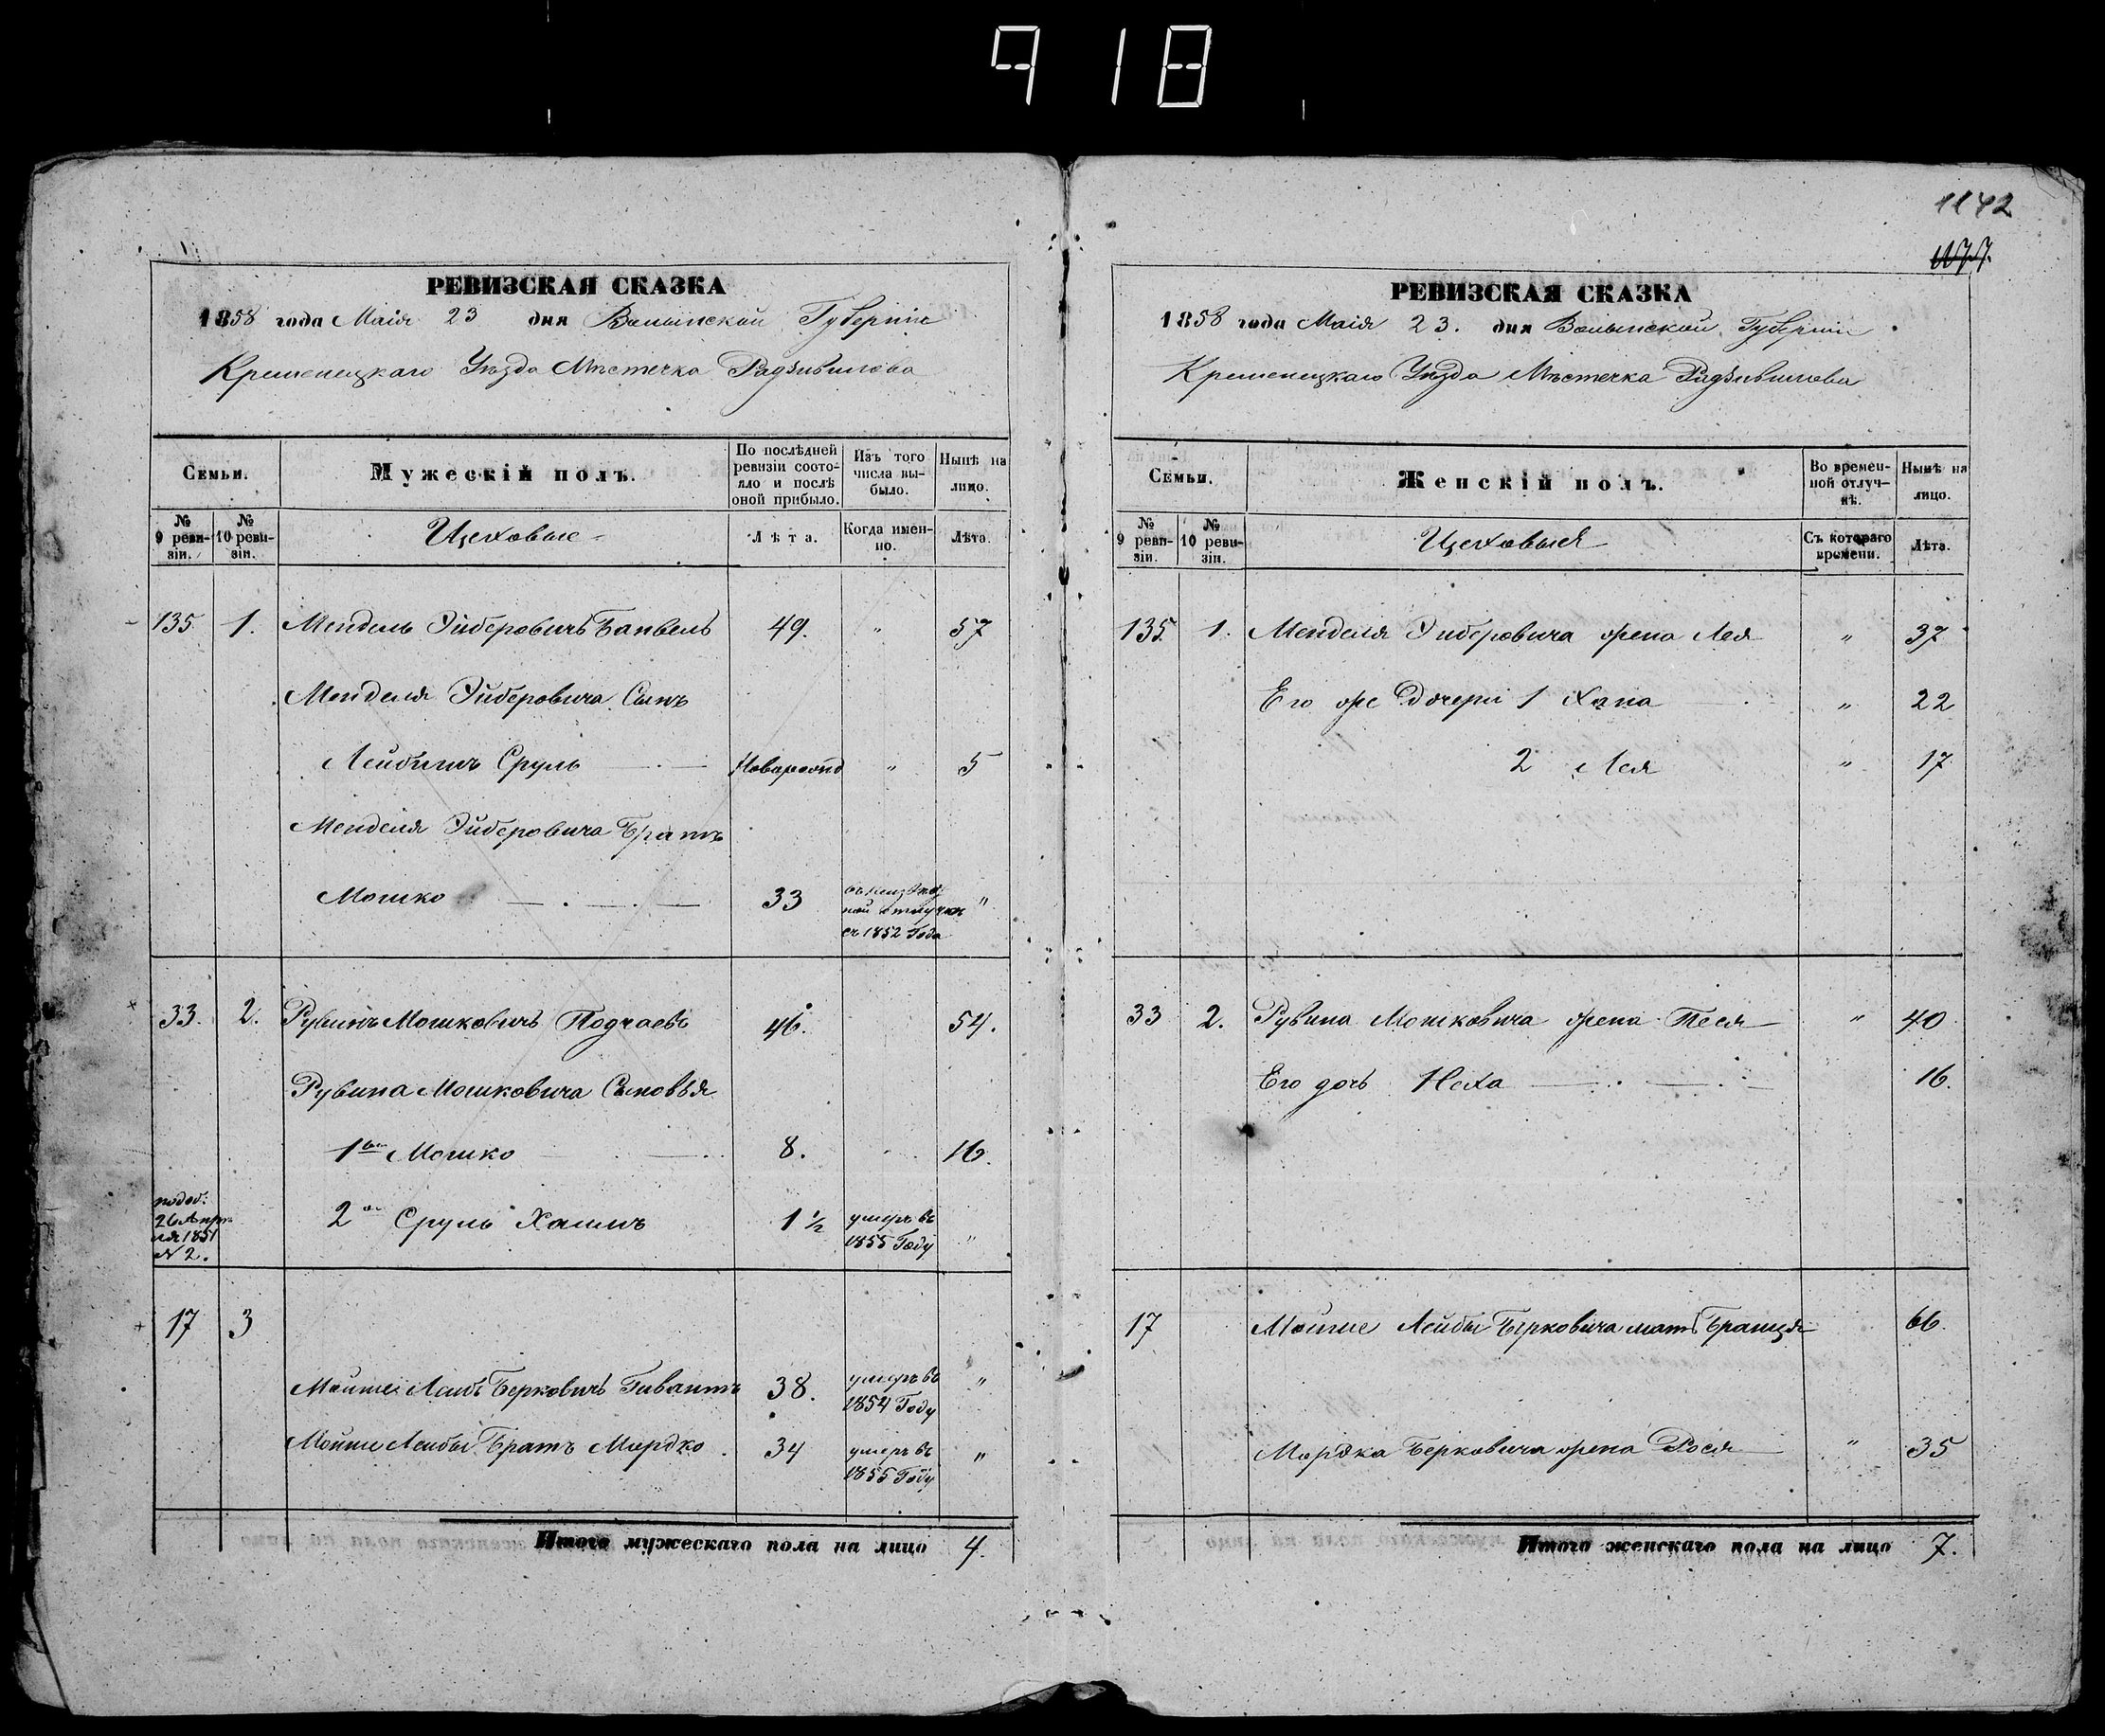 918
1142
1177.
РЕВИЗСКАЯ СКАЗКА
1858 года Маія 23 дня Волынской Губерніи
Кременецкаго Уѣзда Мѣстечка Радзивилова
Семьи.
Мужескій полъ.
По послѣдней ревизіи состояло и послѣ оной прибыло.
Изъ того числа выбыло.
Нынѣ на лицо.
№ 9 ревизіи.
№ 10 ревизіи.
Цеховые
Лѣта.
Когда именно.
Лѣта.
135 1. Мендель Эйберовичъ 49. " 57
Менделя Эйберовича Сынъ
Лейбишъ Сруль " 5
Менделя Эйберовича Братъ
Мошко 33 "
съ 1852 Года
33. 2. Рувинъ Мошковичъ Подчаевъ 46. 54.
Рувина Мошковича Сыновья
1й Мошко 8. 16.
2й Сруль Хаимъ 1 1/2 умеръ въ 1855 Году "
26 Апреля 1851 N 2.
17 3
Мойше Лейбъ Берковичъ 38. умеръ въ 1854 Году "
Мойше Лейбы Братъ Мордко 34 умеръ въ 1855 Году "
Итого мужескаго пола на лицо 4.
РЕВИЗСКАЯ СКАЗКА
1858 года Маія 23. дня Волынской Губерніи
Кременецкаго Уѣзда Мѣстечка Радзивилова
Семьи.
Женскій полъ.
Во временной отлучкѣ.
Нынѣ на лицо.
№ 9 ревизіи.
№ 10 ревизіи.
Цеховыя
Съ котораго времени.
Лѣта.
135 1. Менделя Эйберовича жена Лея " 37
Его же Дочери 1 Хана " 22
2 Лея " 17
33 2. Рувина Мошковича жена Теся " 40
Его дочь Неха 16.
17 Мойше Лейбы Берковича мать 66.
Мордка Берковича жена Рося " 35
Итого женскаго пола на лицо 7.